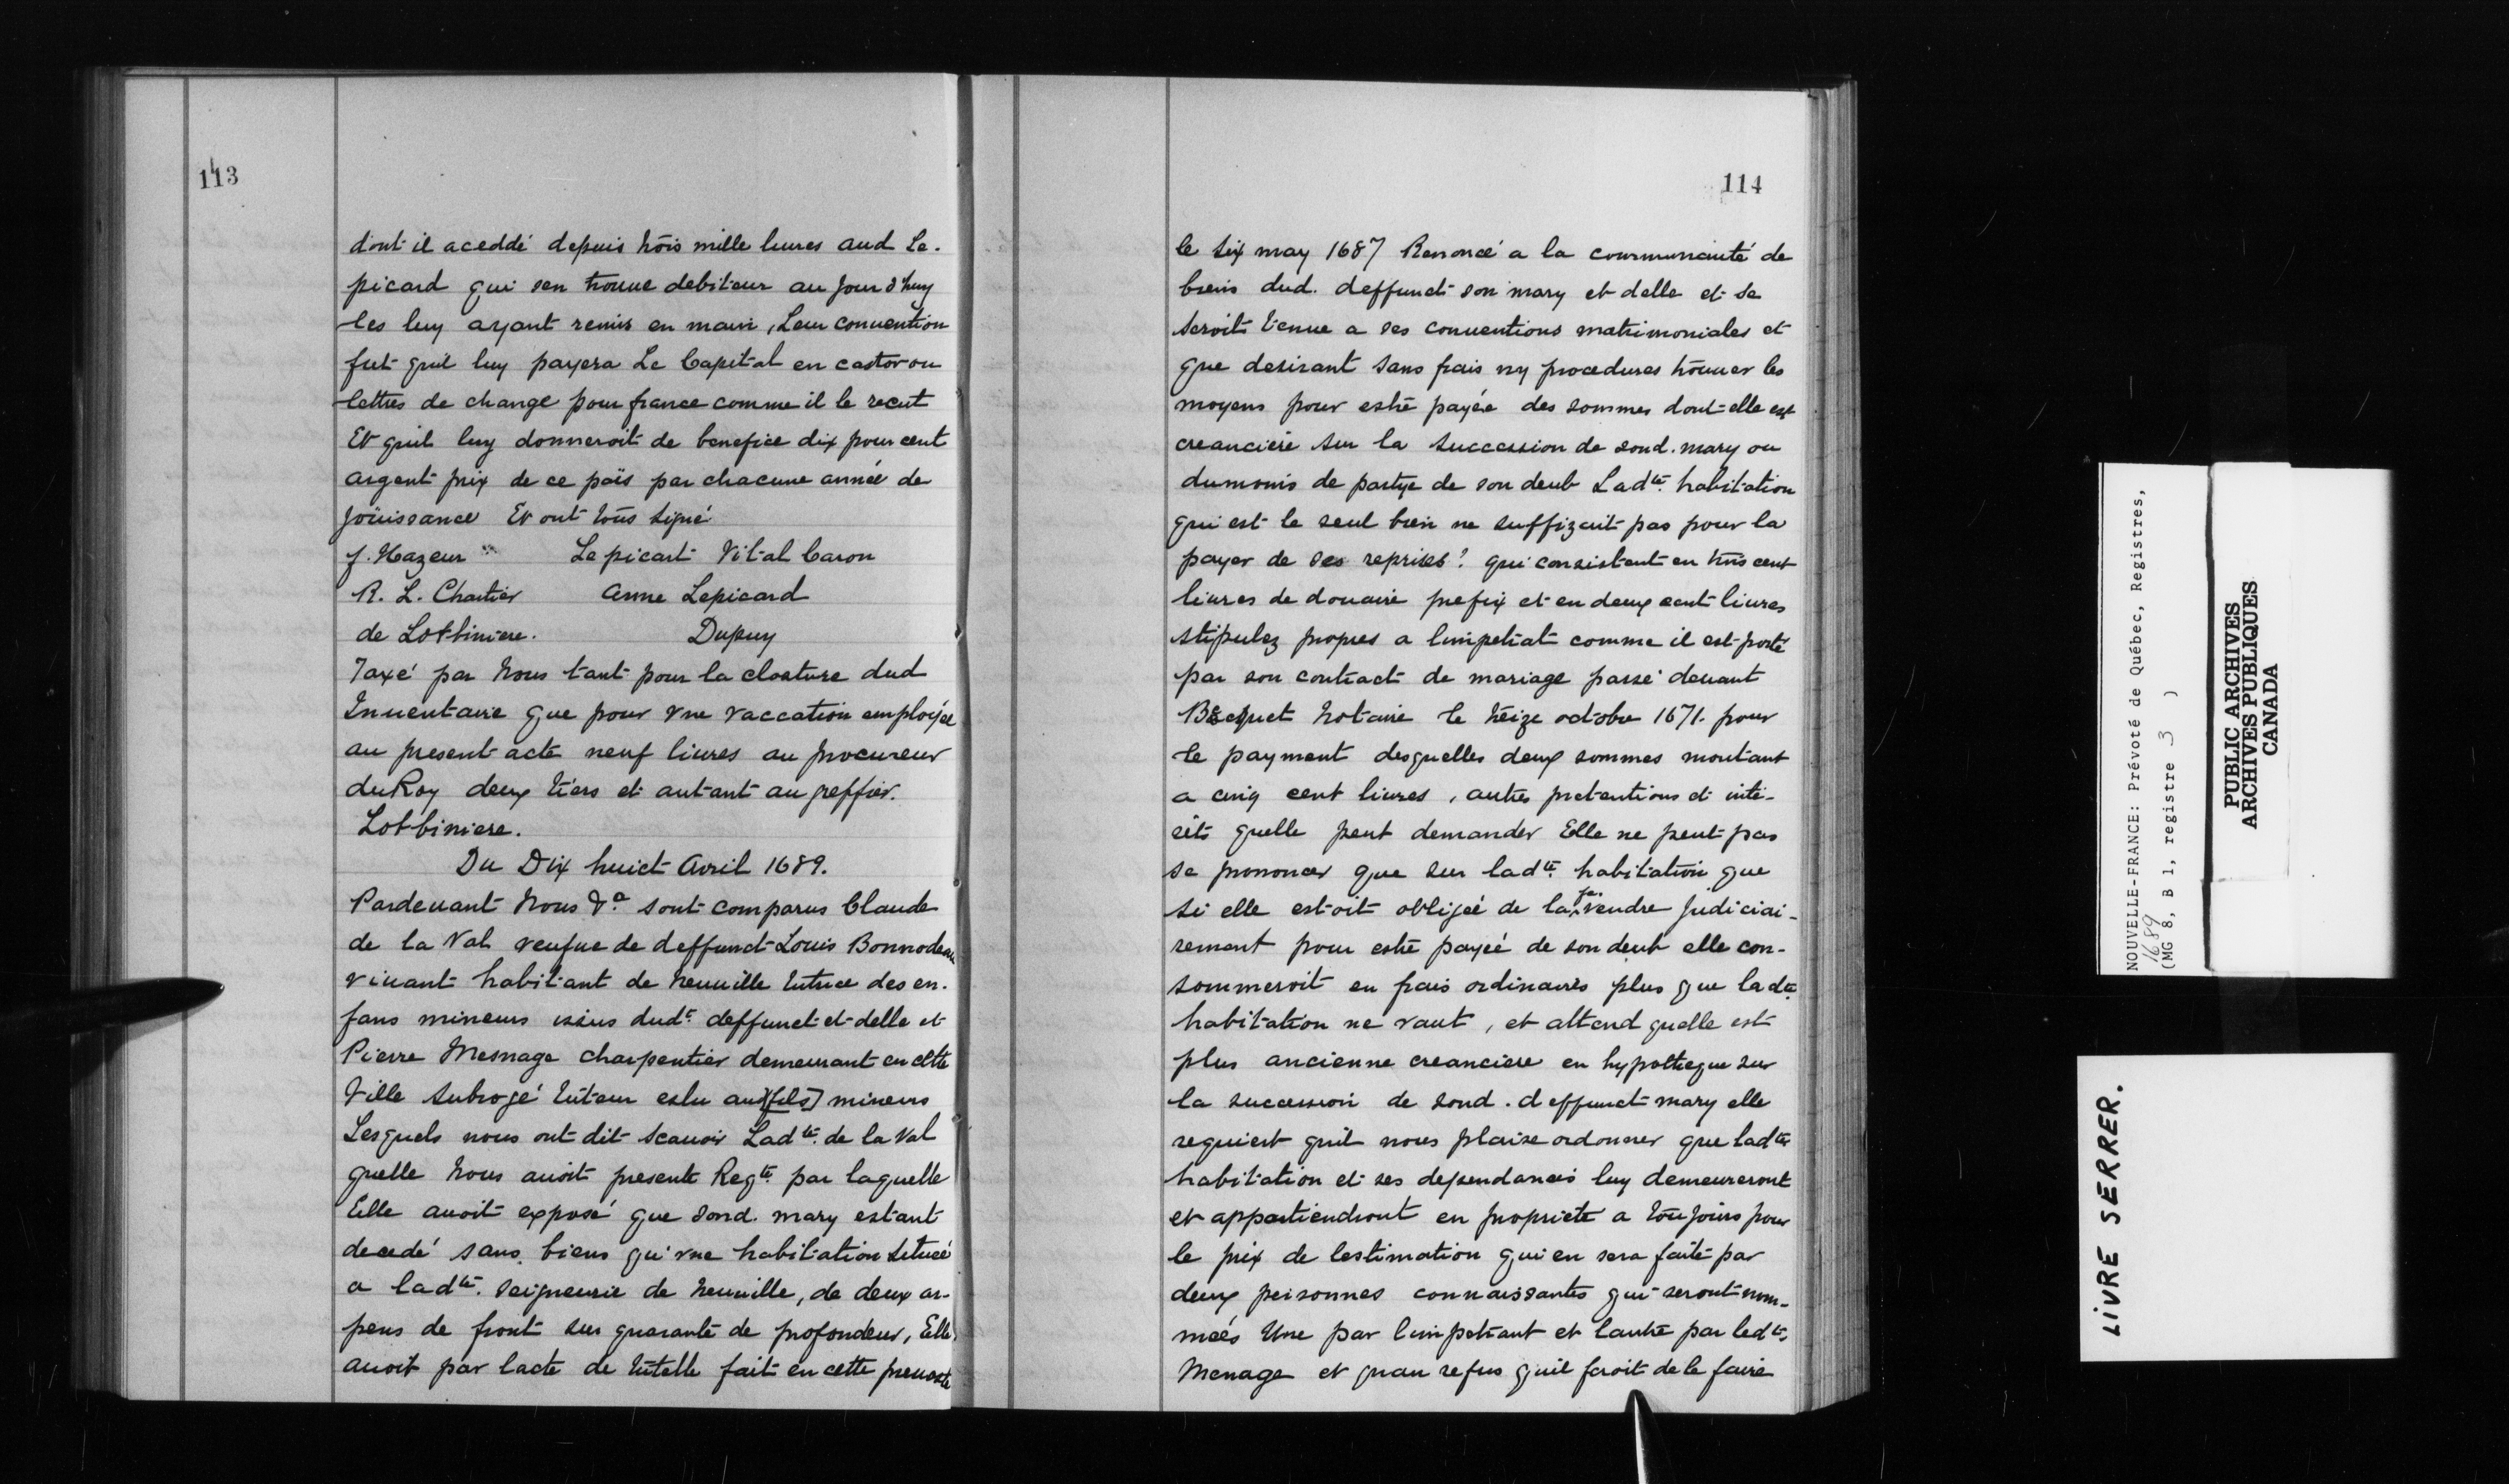 113
dont il aceddé depuis trois mille liures aud Le-
picard qui sen trouue debiteur au jour d'huy
les luy ayant remis en main, Leur conuention
fut quil luy payera Le Capital en castor ou
lettres de change pour france comme il le recut
Et quil luy donneroit de benefice dix pour cent
argent prix de ce païs par chacune année de
joüissance Et ont tous signé
f. Hazeur Le picart Vital Caron
R. L. Chartier anne Lepicard
de Lotbiniere. Dupuy
Taxé par Nous tant pour la closture dud
Inuentaire que pour vne vaccation emploÿée
au present acte neuf liures au procureur
du Roy deux tiers et autant au greffier.
Lotbiniere.
Du Dix huict Avril 1689.
Pardeuant Nous &a sont comparus Claude
de la Val veufue de deffunct Louis Bonnodeau
viuant habitant de Neuuille tutrice des en-
fans mineurs issus dudt. deffunct et delle et
Pierre Mesnage charpentier demeurant en cette
Ville Subrogé tuteur eslu aud [fils] mineurs
Lesquels nous ont dit scauoir Ladte. de la Val
quelle Nous auoit presente Reqte. par laquelle
Elle auoit exposé que sond. mary estant
decedé sans biens qu'vne habitation situeé
a ladte. seigneurie de Neuuille, de deux ar-
pens de front sur quarante de profondeur, Elle
auoit par lacte de tutelle fait en cette preuosté
114
le six may 1687 Renoncé a la communauté de
biens dud. deffunct son mary et delle et se
seroit tenue a ses conuentions matrimoniales et
que desirant sans frais ny procedures trouuer les
moyens pour estre payée des sommes dont elle est
creanciere sur la succession de sond. mary ou
dumoins de partye de son deub Ladte. habitation
qui est le seul bien ne suffizait pas pour la
payer de ses reprises? qui consistent en trois cent
liures de douaire prefix et en deux cent liures
stipulez propres a limpetrat comme il est porté
par son contract de mariage passé deuant
Becquet Notaire le treize octobre 1671. pour
le payment desquelles deux sommes montant
a cinq cent liures, autres pretentions et inte-
rêts quelle peut demander Elle ne peut pas
se prononcer que sur ladte. habitation que
si elle estoit obligeé de la fe. vendre judiciai-
rement pour estre payeé de son deub elle con-
sommeroit en frais ordinaires plus que ladte.
habitation ne vaut, et attend quelle est
plus ancienne creanciere en hypotheque sur
la succession de sond. deffunct mary elle
requiert quil nous plaise ordonner que ladte.
habitation et ses dependances luy demeureront
et appartiendront en propriete a toujours pour
le prix de lestimation qui en sera faite par
deux personnes connaissantes qui seront nom-
meés Une par limpetrant et lautre par ledte.
Menage et quau refus quil feroit de le faire
NOUVELLE-FRANCE: Prévoté de Québec, Registres,
1689
(MG 8, B 1, registre 3 )
PUBLIC ARCHIVES
ARCHIVES PUBLIQUES
CANADA
LIVRE SERRER.